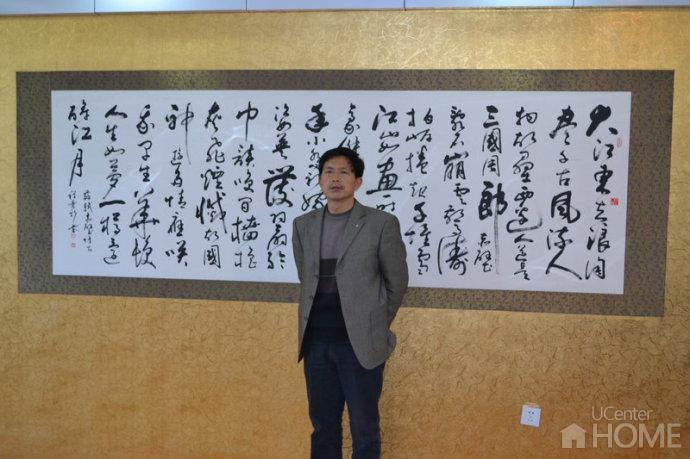 大江东去浪淘
尽千古风流人
物故垒西边人道是
三国周郎赤壁
乱石崩云惊涛
拍岸捲起千堆雪
江山如画
年小乔初嫁
姿英发羽扇纶
巾谈笑间樯
灰飞烟灭故国
神遊多情应笑
我早生华发
人生如梦一樽还
酹江月
苏轼赤壁怀古
UCenter
HOME